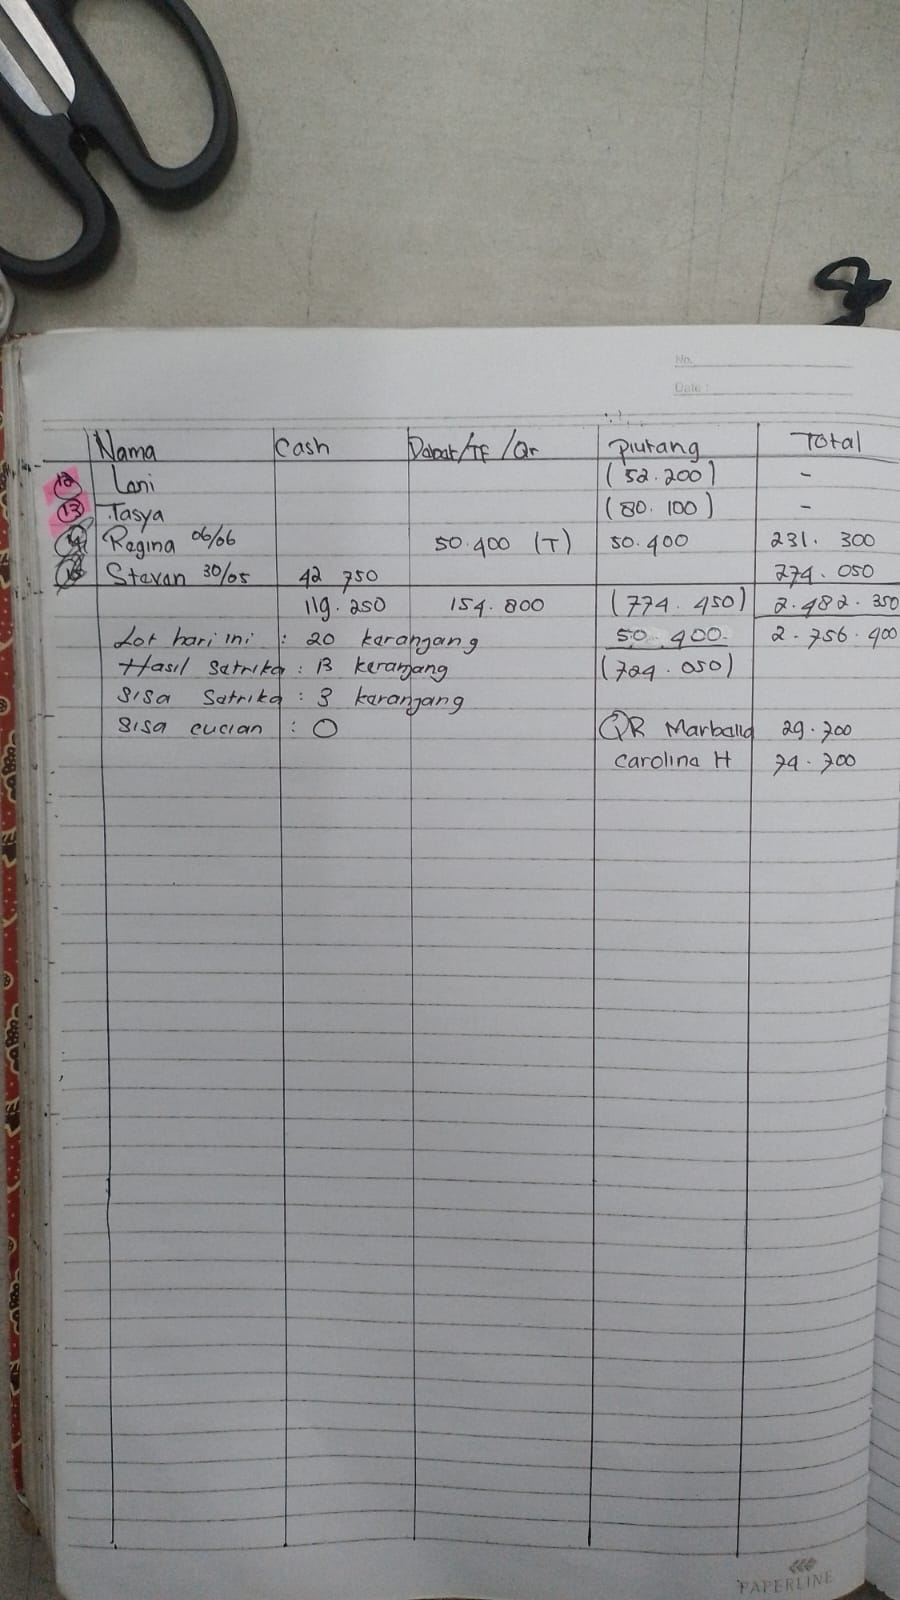 No.
Date :
Nama Cash Debet/TF/Qr piutang Total
12 Lani (52.200) -
13 Tasya (80.100) -
14 Regina 06/06 50.400 (T) 50.400 231.300
15 Stevan 30/05 42 750 274.050
119.250 154.800 (774.450) 2.482.350
Lot hari ini : 20 keranjang 50.400 2.756.400
Hasil Setrika : 13 keranjang (724.050)
Sisa Setrika : 3 keranjang
Sisa cucian : 0 QR Marballa 29.700
Carolina H 74.700
PAPERLINE